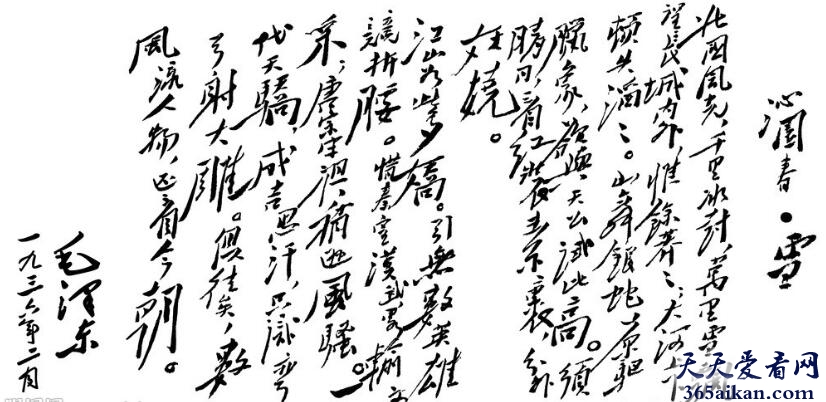 沁園春·雪
北國風光,千里冰封,萬里雪飄。
望長城内外,惟餘莽〻;大河上下,
頓失滔〻。山舞銀蛇,原驅
臘象,欲與天公試比高。須
晴日,看红裝素裹,分外
妖嬈。
江山如此多嬌。引無數英雄
競折腰。惜秦皇漢武,略輸文
采;唐宗宋祖,稍遜風騷。一
代天驕,成吉思汗,只識彎
弓射大雕。俱往矣,數
風流人物,还看今朝。
毛澤东
一九三六年二月
天天爱看网
365aikan.com